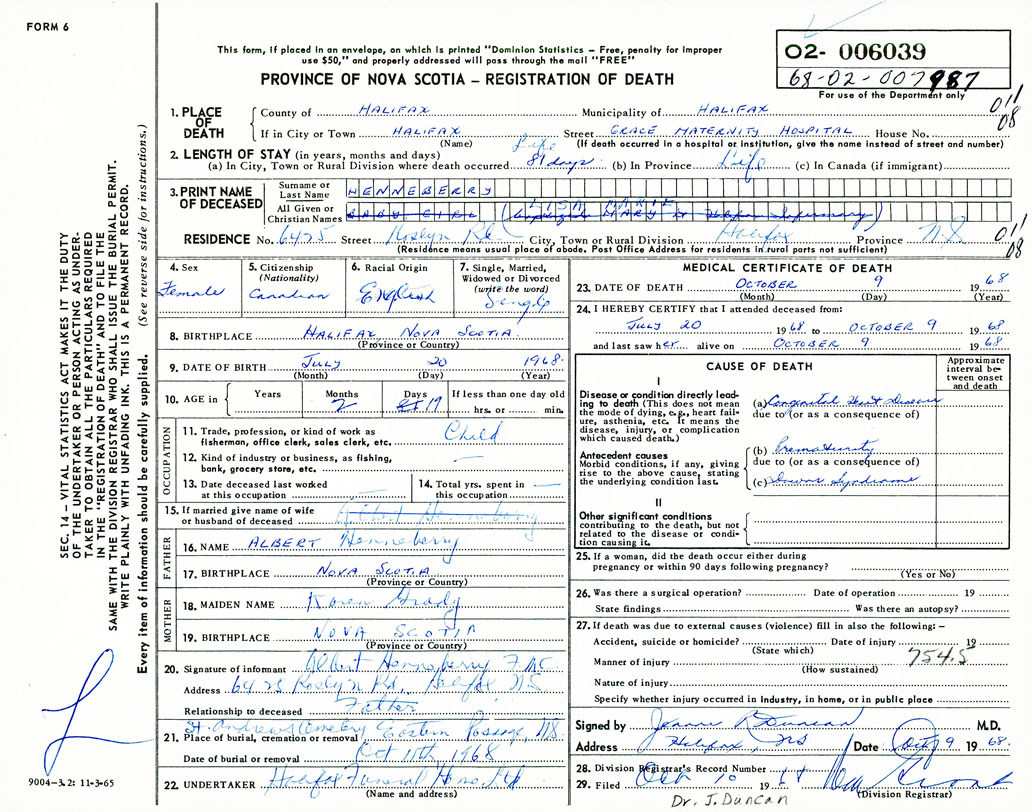 FORM 6
This form, if placed in an envelope, on which is printed "Dominion Statistics – Free, penalty for improper
use $50," and properly addressed will pass through the mail "FREE"
PROVINCE OF NOVA SCOTIA – REGISTRATION OF DEATH
02- 006039
68-02-007987
For use of the Department only
011
08
SEC. 14 – VITAL STATISTICS ACT MAKES IT THE DUTY
OF THE UNDERTAKER OR PERSON ACTING AS UNDER-
TAKER TO OBTAIN ALL THE PARTICULARS REQUIRED
IN THE "REGISTRATION OF DEATH" AND TO FILE THE
SAME WITH THE DIVISION REGISTRAR WHO SHALL ISSUE THE BURIAL PERMIT.
WRITE PLAINLY WITH UNFADING INK. THIS IS A PERMANENT RECORD.
Every item of information should be carefully supplied. (See reverse side for instructions.)
1. PLACE OF DEATH
County of HALIFAX Municipality of HALIFAX
If in City or Town HALIFAX Street GRACE MATERNITY HOSPITAL House No.
(Name) (If death occurred in a hospital or institution, give the name instead of street and number)
2. LENGTH OF STAY (in years, months and days)
Life
(a) In City, Town or Rural Division where death occurred 81 days (b) In Province Life (c) In Canada (if immigrant)
3. PRINT NAME OF DECEASED
Surname or Last Name HENNEBERRY
LISA MARIE
All Given or Christian Names BABY GIRL MARY
RESIDENCE No. 6475 Street Roslyn Rd. City, Town or Rural Division Halifax Province N.S.
(Residence means usual place of abode. Post Office Address for residents in rural parts not sufficient)
011
08
4. Sex
Female
5. Citizenship
(Nationality)
Canadian
6. Racial Origin
English
7. Single, Married,
Widowed or Divorced
(write the word)
Single
8. BIRTHPLACE HALIFAX NOVA SCOTIA
(Province or Country)
9. DATE OF BIRTH JULY 20 1968.
(Month) (Day) (Year)
10. AGE in Years Months Days If less than one day old
2 19 hrs. or min.
OCCUPATION
11. Trade, profession, or kind of work as
fisherman, office clerk, sales clerk, etc. Child
12. Kind of industry or business, as fishing,
bank, grocery store, etc. —
13. Date deceased last worked
at this occupation
14. Total yrs. spent in
this occupation —
15. If married give name of wife
or husband of deceased Albert Henneberry
FATHER
16. NAME ALBERT Henneberry
17. BIRTHPLACE NOVA SCOTIA
(Province or Country)
MOTHER
18. MAIDEN NAME Karen Grady
19. BIRTHPLACE NOVA SCOTIA
(Province or Country)
20. Signature of informant Albert Henneberry
Address 6475 Roslyn Rd, Halifax NS
Relationship to deceased Father
St. Andrews Cemetery Eastern Passage, NS.
21. Place of burial, cremation or removal
Date of burial or removal Oct 11th, 1968
22. UNDERTAKER Halifax Funeral Home Ltd
(Name and address)
9004-3.2: 11-3-65
MEDICAL CERTIFICATE OF DEATH
23. DATE OF DEATH OCTOBER 9 1968
(Month) (Day) (Year)
24. I HEREBY CERTIFY that I attended deceased from:
JULY 20 1968 to OCTOBER 9 1968
and last saw her alive on OCTOBER 9 1968
CAUSE OF DEATH
Approximate
interval be-
tween onset
and death
I
Disease or condition directly lead-
ing to death (This does not mean
the mode of dying, e.g., heart fail-
ure, asthenia, etc. It means the
disease, injury, or complication
which caused death.)
(a) Congenital Heart Disease
due to (or as a consequence of)
Antecedent causes
Morbid conditions, if any, giving
rise to the above cause, stating
the underlying condition last.
(b) Prematurity
due to (or as a consequence of)
(c) Downs Syndrome
II
Other significant conditions
contributing to the death, but not
related to the disease or condi-
tion causing it.
25. If a woman, did the death occur either during
pregnancy or within 90 days following pregnancy?
(Yes or No)
26. Was there a surgical operation? Date of operation 19
State findings Was there an autopsy?
27. If death was due to external causes (violence) fill in also the following: –
Accident, suicide or homicide? Date of injury 19
(State which)
754.5
Manner of injury
(How sustained)
Nature of injury
Specify whether injury occurred in Industry, in home, or in public place
Signed by Jeanne R Duncan M.D.
Address Halifax, NS Date Oct 9 1968.
28. Division Registrar's Record Number
29. Filed Oct 10 1968
(Division Registrar)
Dr. J. Duncan